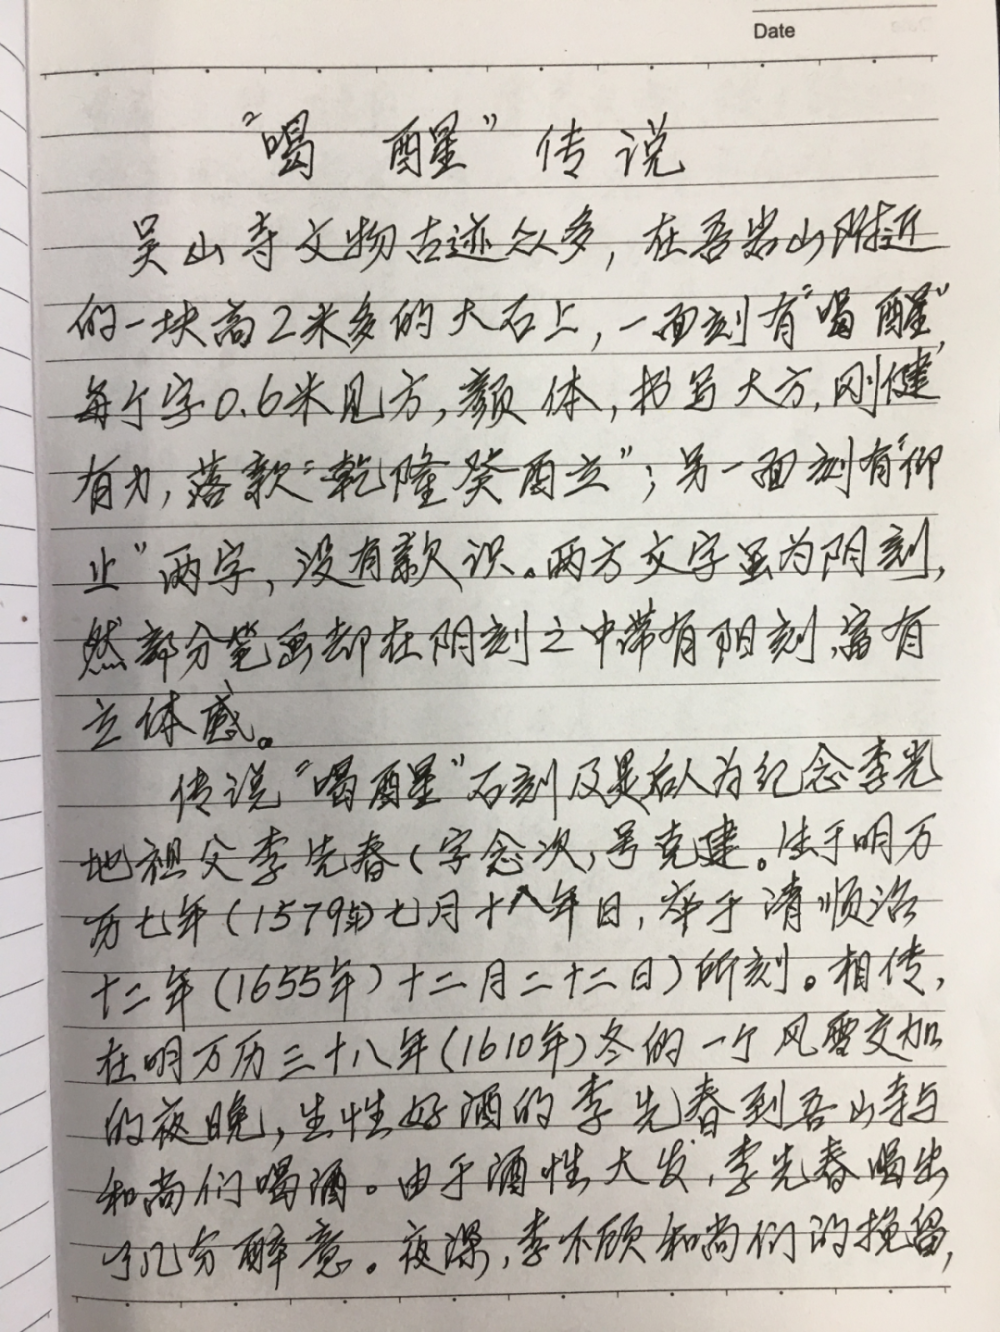 Date
"喝 醒"传说
吴山寺文物古迹众多，在吾岩山附近
的一块高2米多的大石上，一面刻有"喝 醒"，
每个字0.6米见方，颜体，书写大方，刚健
有力，落款"乾隆癸酉立"；另一面刻有"仰
止"两字，没有款识。两方文字虽为阴刻，
然部分笔画却在阴刻之中带有阳刻，富有
立体感。
传说"喝醒"石刻及是后人为纪念李光
地祖父李先春（字念次，号克建。生于明万
历七年（1579年）七月十八年日，卒于清顺治
十二年（1655年）十二月二十二日）所刻。相传，
在明万历三十八年（1610年）冬的一个风雪交加
的夜晚，生性好酒的李先春到吾山寺与
和尚们喝酒。由于酒性大发，李先春喝出
了几分醉意。夜深，李不顾和尚们的挽留，